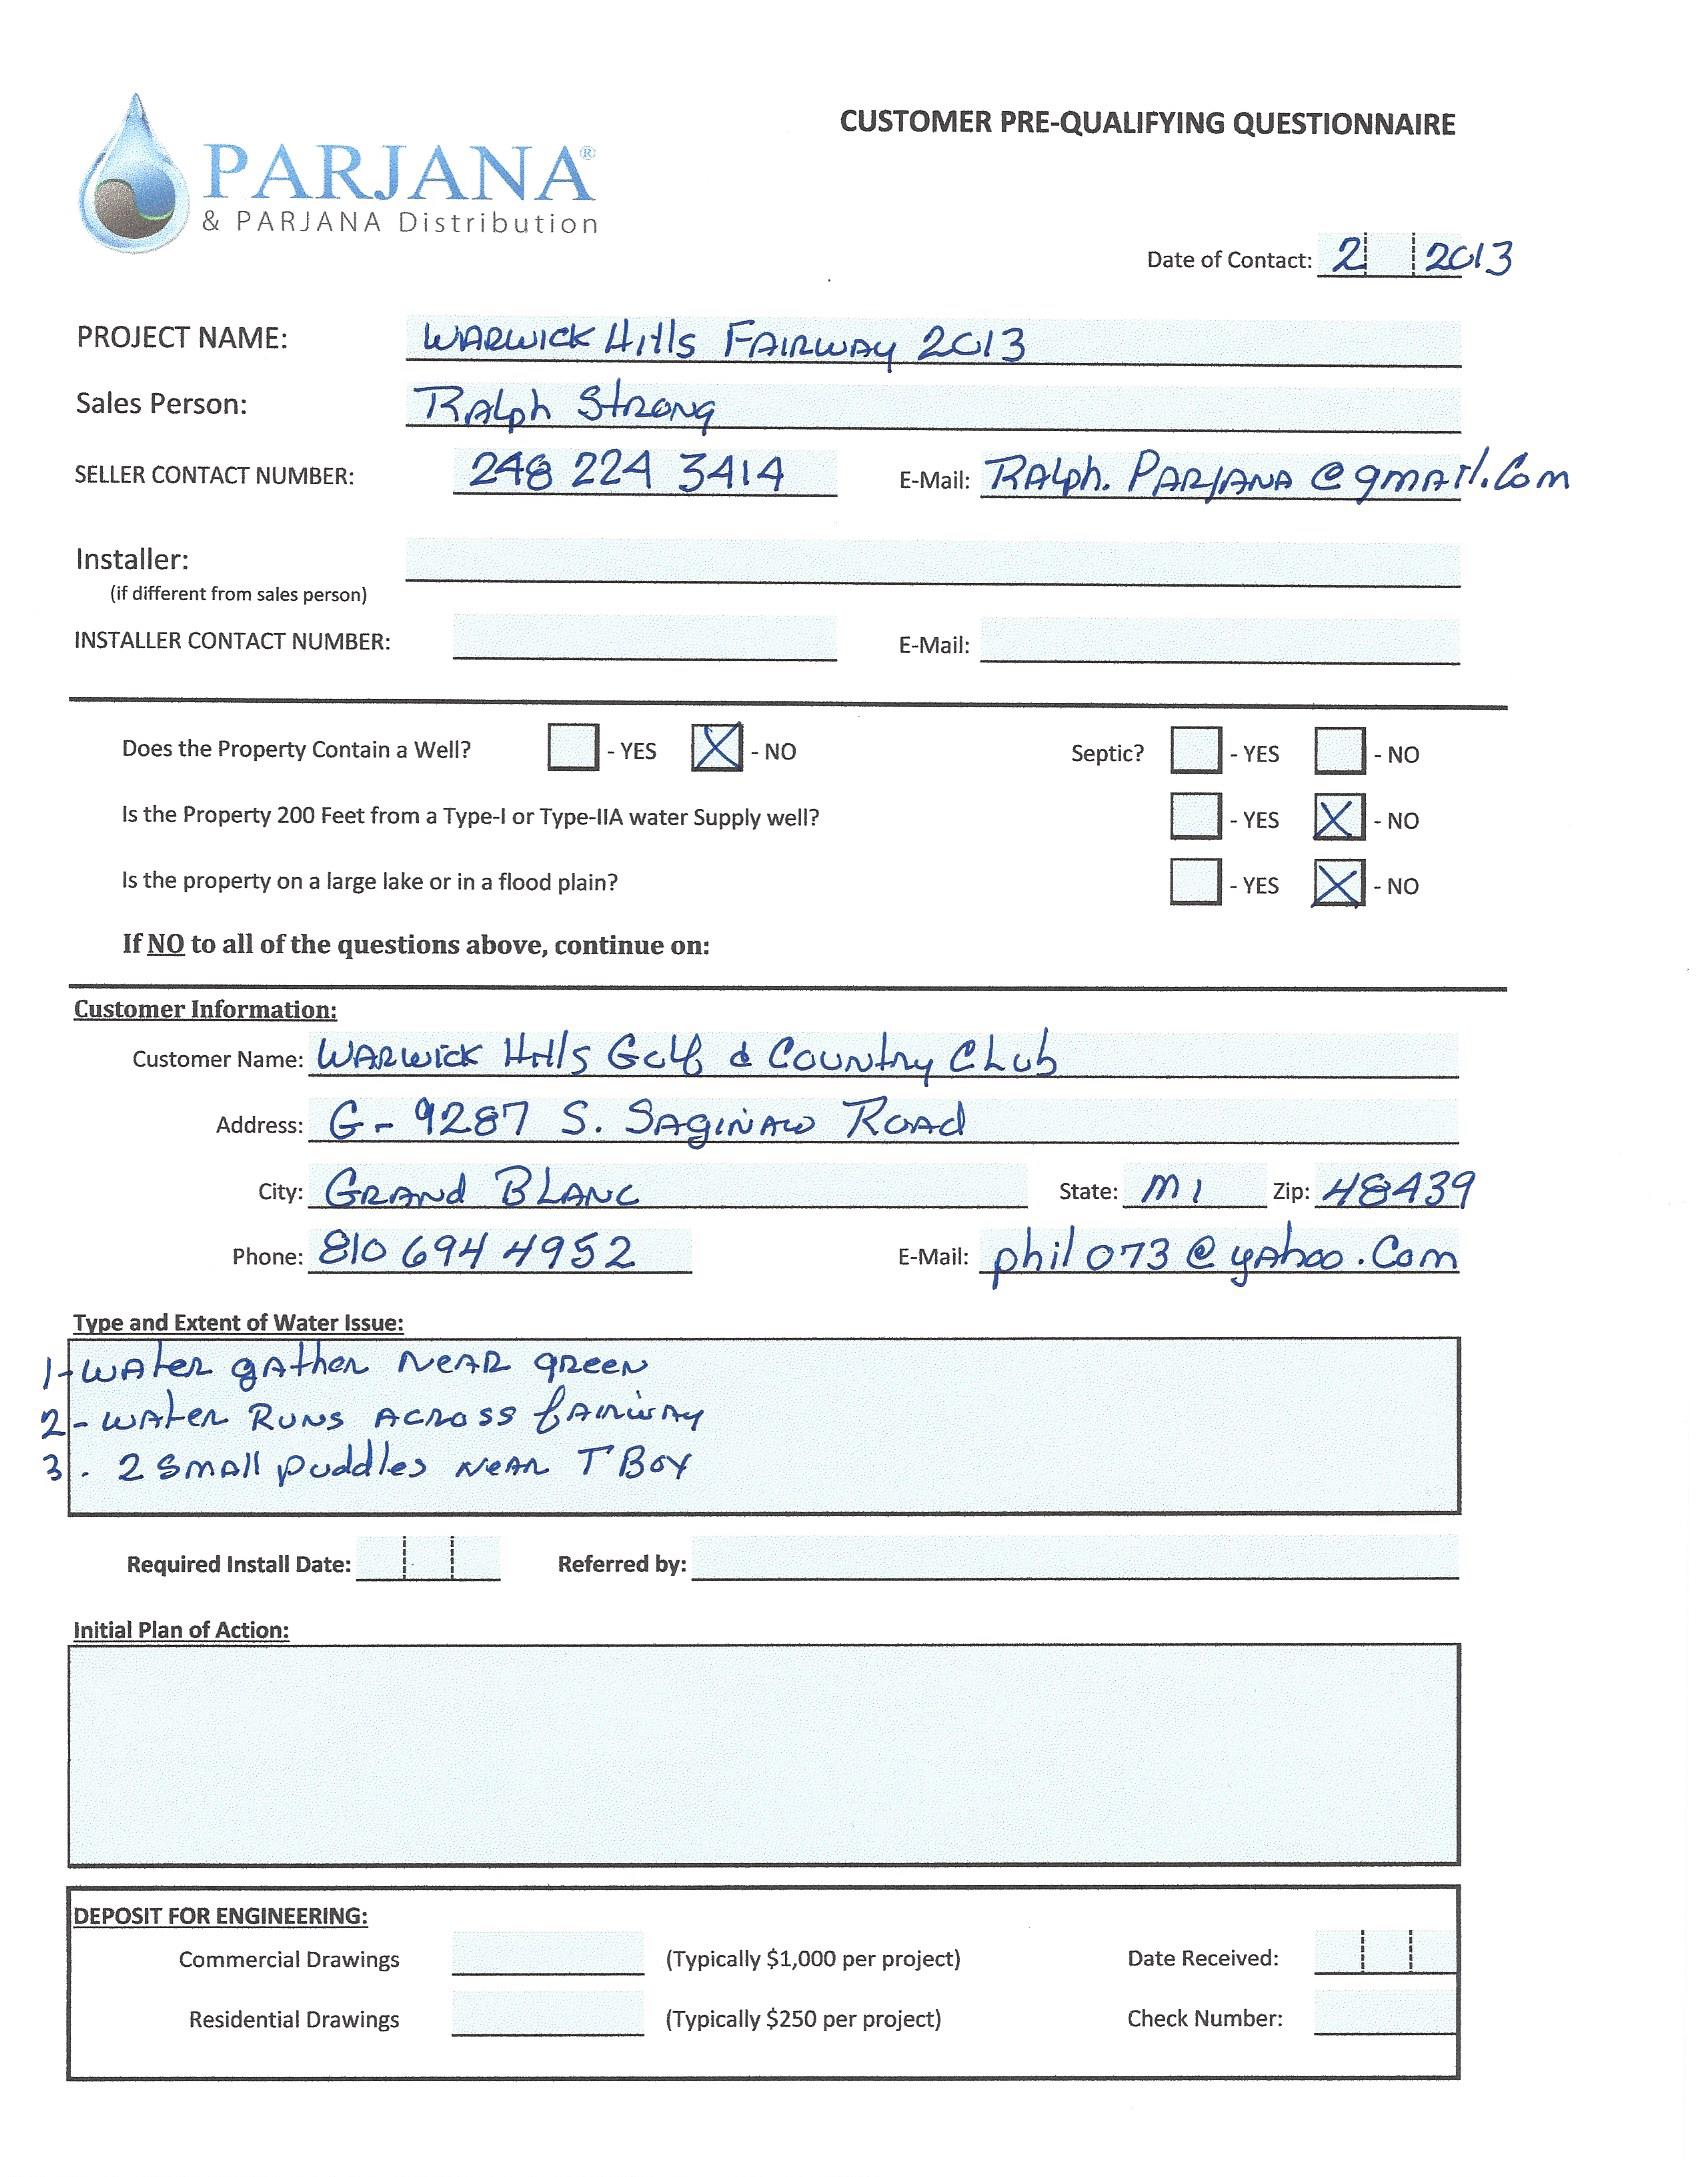 CUSTOMER PRE-QUALIFYING QUESTIONNAIRE
PARJANA®
& PARJANA Distribution
Date of Contact: 2 2013
PROJECT NAME: WARWICK Hills FAIRWAY 2013
Sales Person: RALph StRONg
SELLER CONTACT NUMBER: 248 224 3414 E-Mail: RALph.PARJANA@gmail.com
Installer:
(if different from sales person)
INSTALLER CONTACT NUMBER: E-Mail:
Does the Property Contain a Well? - YES X - NO Septic? - YES - NO
Is the Property 200 Feet from a Type-I or Type-IIA water Supply well? - YES X - NO
Is the property on a large lake or in a flood plain? - YES X - NO
If NO to all of the questions above, continue on:
Customer Information:
Customer Name: WARWICK Hills Golf & COUNtRy CLub
Address: G-9287 S. SAgINAW ROAd
City: GRANd BLANC State: MI Zip: 48439
Phone: 810 694 4952 E-Mail: phil073@yahoo.Com
Type and Extent of Water Issue:
1-WAteR gAtheR NeAR gReeN
2-WAteR RUNS ACROSS fAIRwAy
3. 2 SmAll puddles NeAR T Box
Required Install Date: Referred by:
Initial Plan of Action:
DEPOSIT FOR ENGINEERING:
Commercial Drawings (Typically $1,000 per project) Date Received:
Residential Drawings (Typically $250 per project) Check Number: